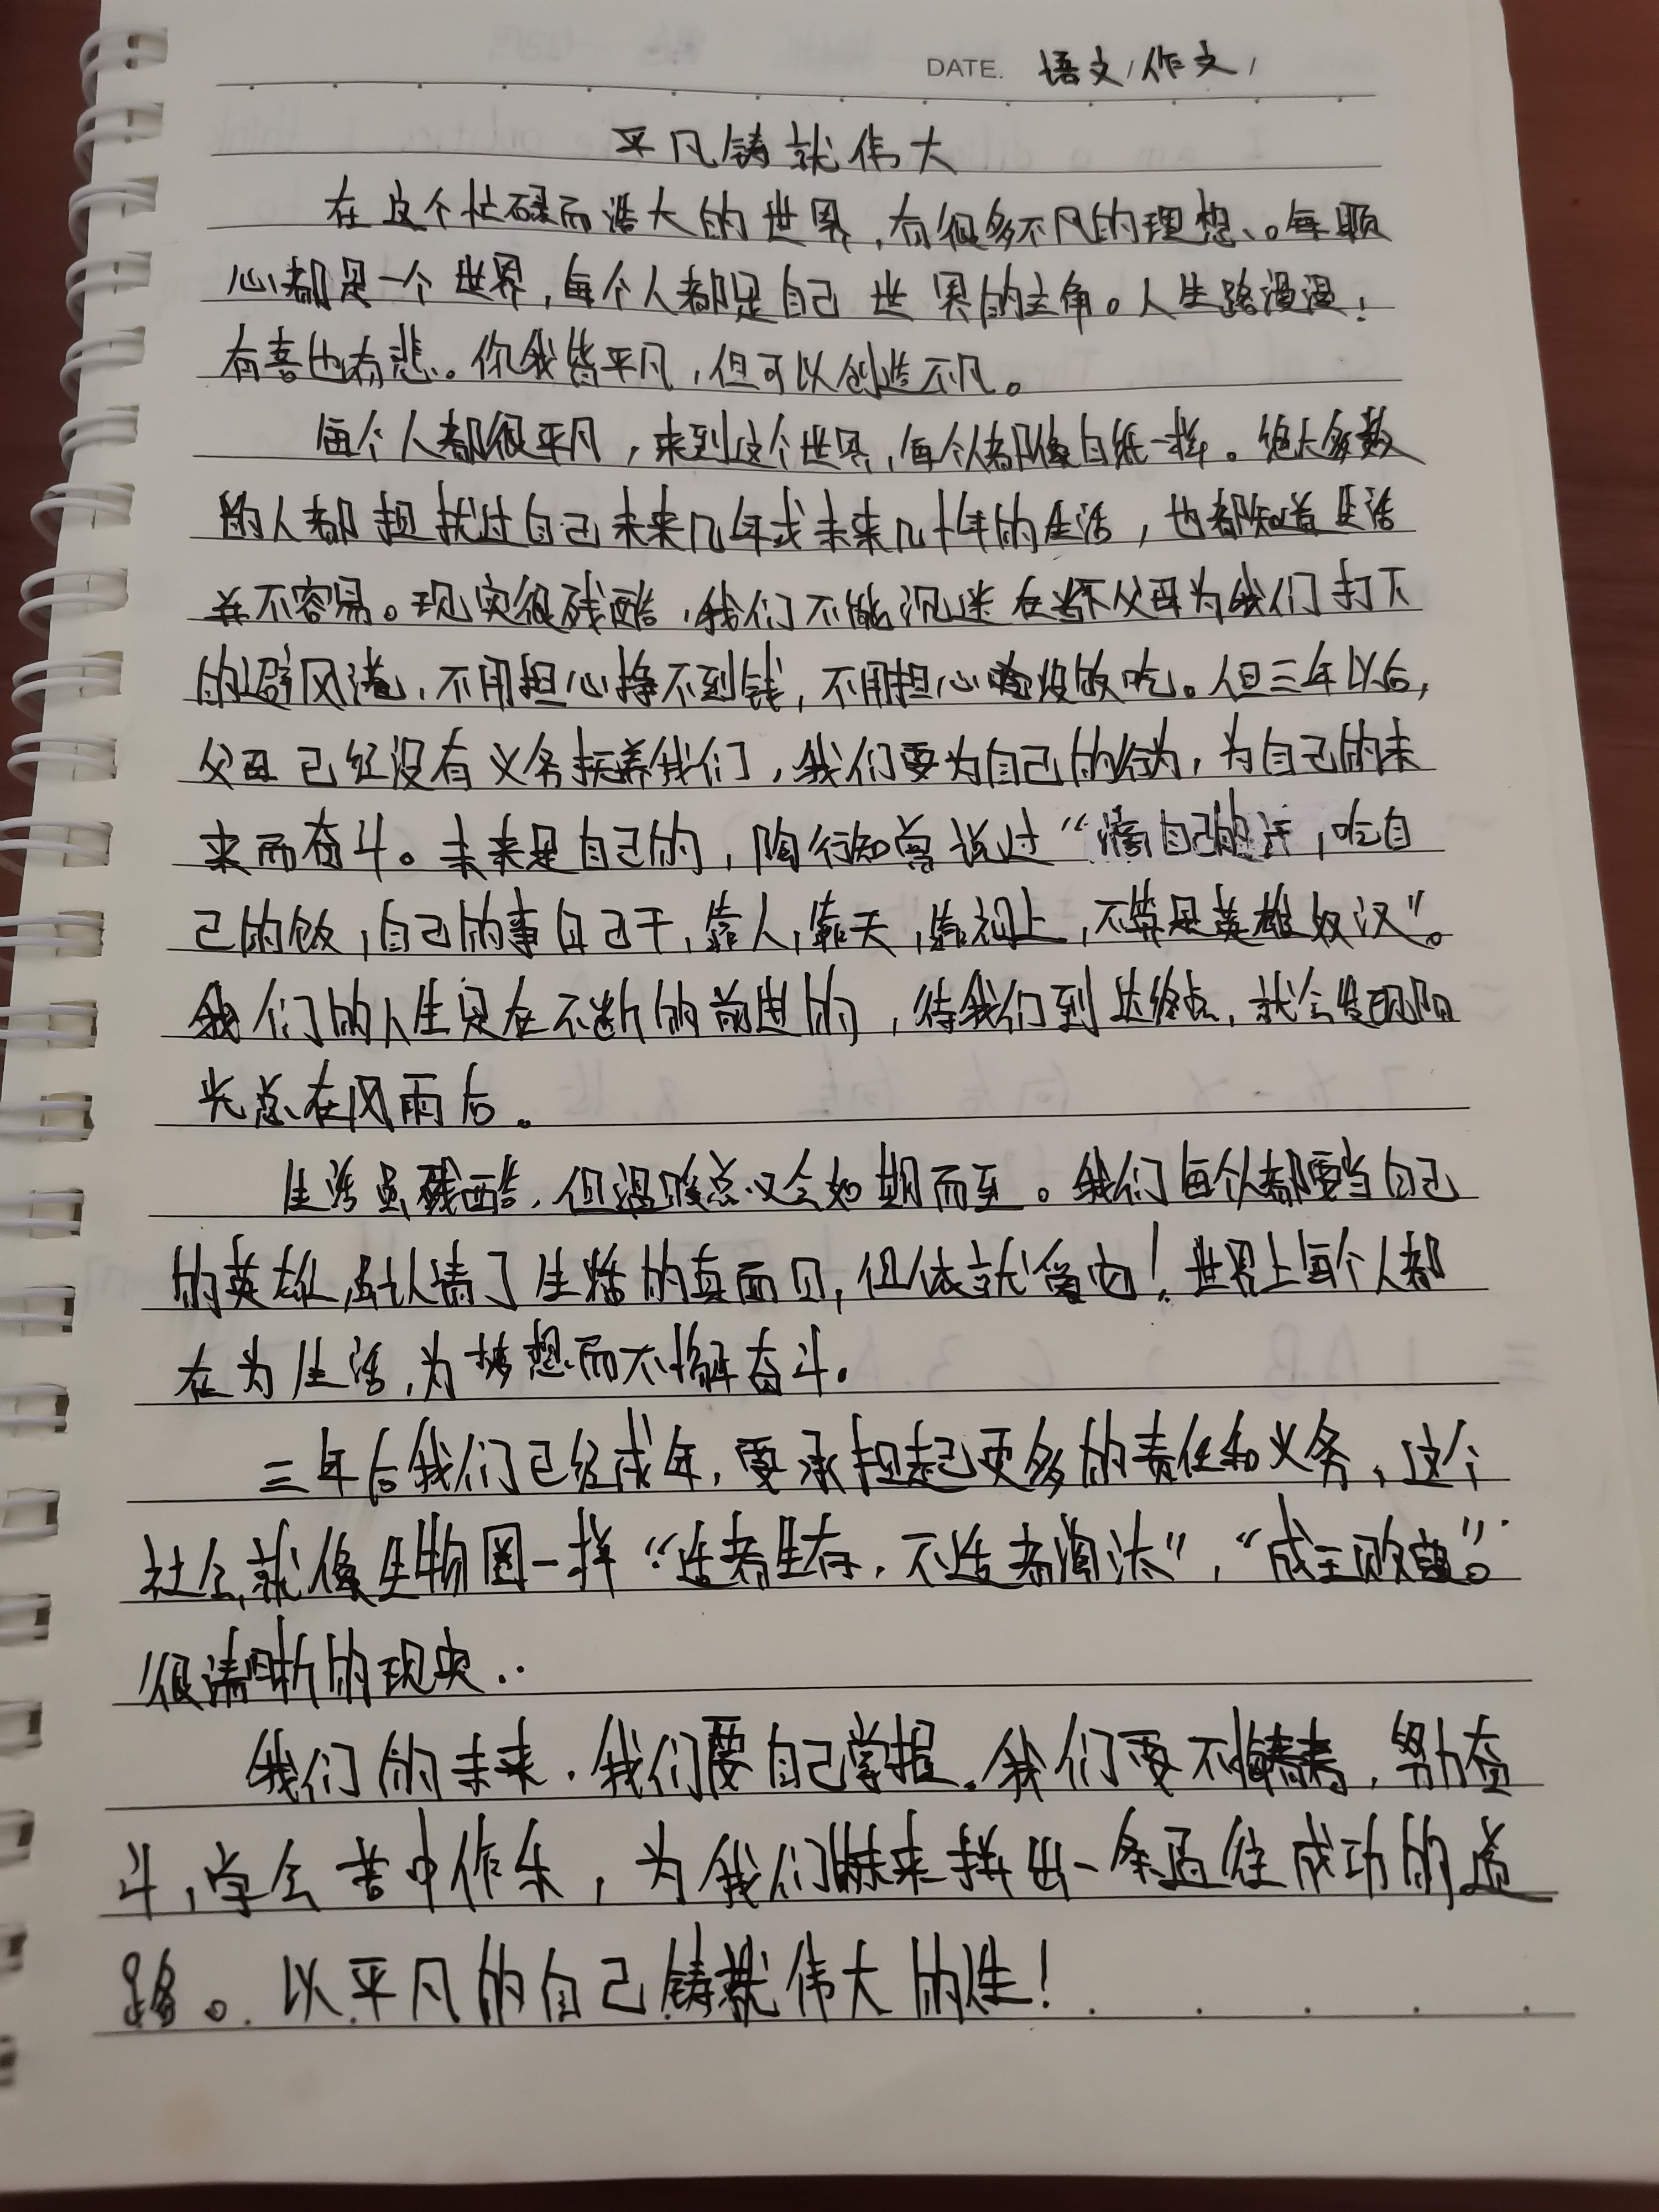 DATE. 语文/作文/
平凡铸就伟大
在这个忙碌而浩大的世界,有很多不凡的理想。每颗
心都是一个世界,每个人都是自己世界的主角。人生路漫漫!
有喜也有悲。你我皆平凡,但可以创造不凡。
每个人都很平凡,来到这个世界,每个人都像白纸一样。绝大多数
的人都担扰过自己未来几年或未来几十年的生活,也都知道生活
并不容易。现实很残酷,我们不能沉迷在当下父母为我们打下
的避风港,不用担心挣不到钱,不用担心没饭吃。但三年以后,
父母已经没有义务抚养我们,我们要为自己的行为,为自己的未
来而奋斗。未来是自己的,陶行知曾说过“滴自己的汗,吃自
己的饭,自己的事自己干,靠人,靠天,靠祖上,不算是英雄好汉”。
我们的人生是在不断的前进的,待我们到达终点,就会发现阳
光总在风雨后。
生活虽残酷,但温暖总又会如期而至。我们每个人都要当自己
的英雄,虽认清了生活的真面目,但依就爱它!世界上每个人都
在为生活,为梦想而不懈奋斗。
三年后我们已经成年,要承担起更多的责任和义务,这个
社会就像生物圈一样“适者生存,不适者淘汰”,“成王败寇”。
很清晰的现实..
我们的未来,我们要自己掌握。我们要不惧青春,努力奋
斗,学会苦中作乐,为我们的未来拼出一条通往成功的道
路。以平凡的自己铸就伟大的人生!